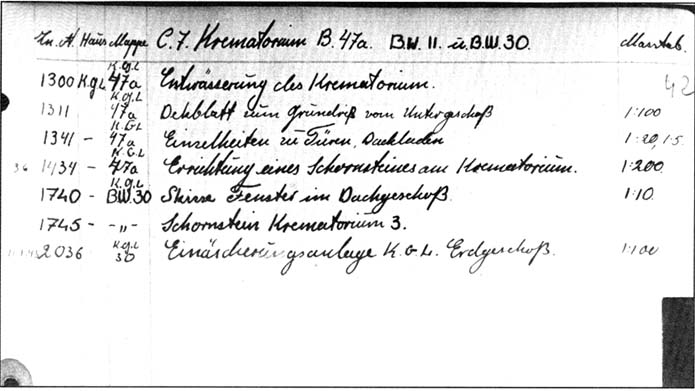 Zn. A. Haus Mappe C.7. Krematorium B. 47a. B.W. 11. u. B.W. 30. Masstab.
1300 K.g.L K.g.L 47a Entwässerung des Krematorium.
1311 K.g.L 47a Dekblatt zum Grundriß vom Untergeschoß 1:100
1341 - K.G.L 47a Einzelheiten zu Türen, Dackladen 1:20, 1:5.
36 1434 - K.G.L 47a Errichtung eines Schornsteines am Krematorium. 1:200.
1740 - K.g.L B.W.30 Skizze Fenster im Dachgeschoß. 1:10.
1745 - -„- Schornstein Krematorium 3.
2036 K.g.L 30 Einäscherungsanlage K.G.L. Erdgeschoß. 1:100
42